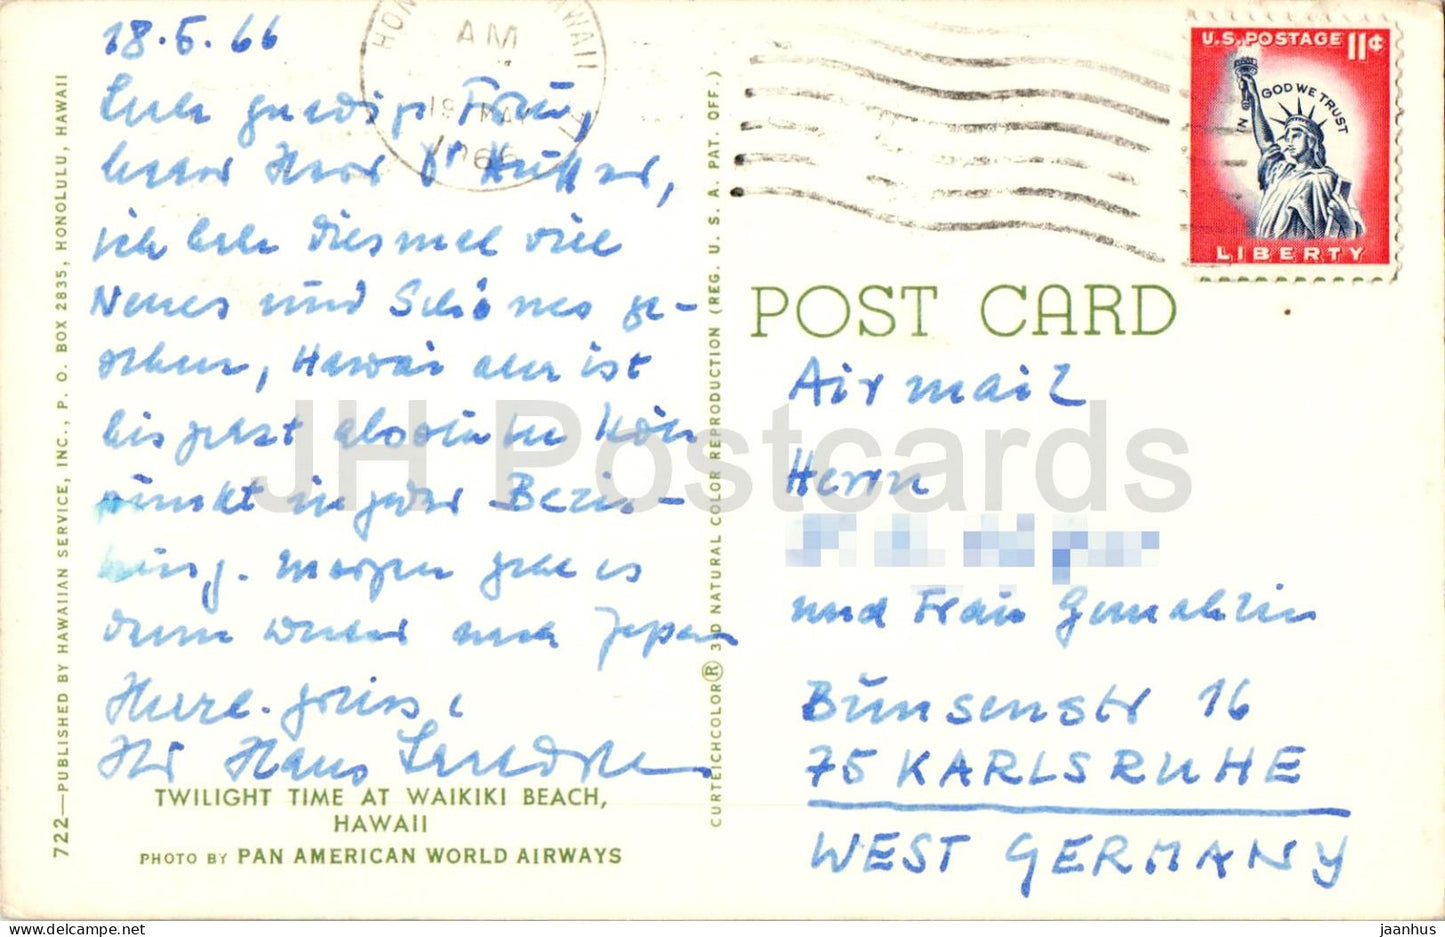 18.5.66
Sehr gnädige Frau,
lieber Herr Dr
ich habe diesmal viel
Neues und Schönes ge-
sehen, Hawai aber ist
bis jetzt absoluter Höhe
punkt in jeder Bezie-
hung. Morgen geht es
dann weiter nach Japan
Herzl. Grüsse,
Ihr Hans
TWILIGHT TIME AT WAIKIKI BEACH,
HAWAII
PHOTO BY PAN AMERICAN WORLD AIRWAYS
722—PUBLISHED BY HAWAIIAN SERVICE, INC., P. O. BOX 2835, HONOLULU, HAWAII
CURTEICHCOLOR® 3-D NATURAL COLOR REPRODUCTION (REG. U. S. A. PAT. OFF.)
AM
19 MAY
1966
U.S. POSTAGE 11¢
IN GOD WE TRUST
LIBERTY
POST CARD
Airmail
Herrn
und Frau Gemahlin
Bunsenstr 16
75 KARLSRUHE
WEST GERMANY
JH Postcards
jaanhus